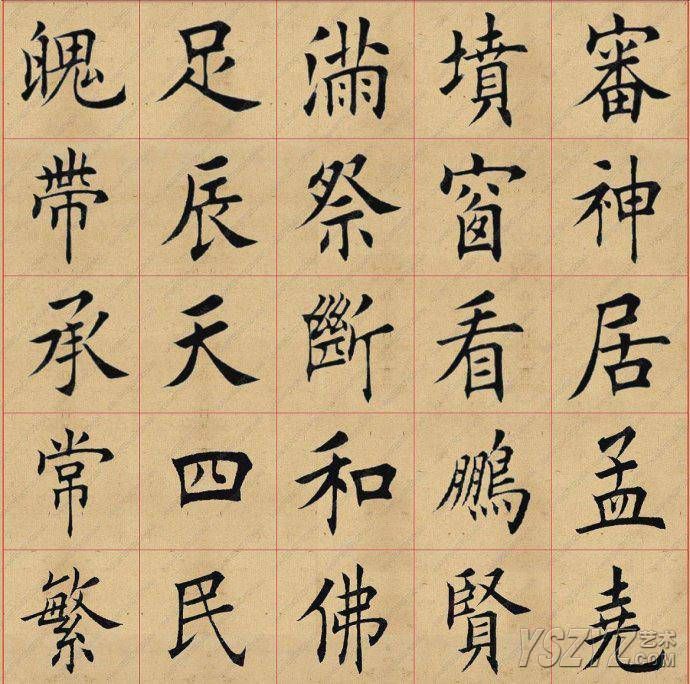 魄足滿墳審
帶辰祭窗神
承天斷看居
常四和鵬孟
繁民佛賢堯
YSZYZ艺术.COM